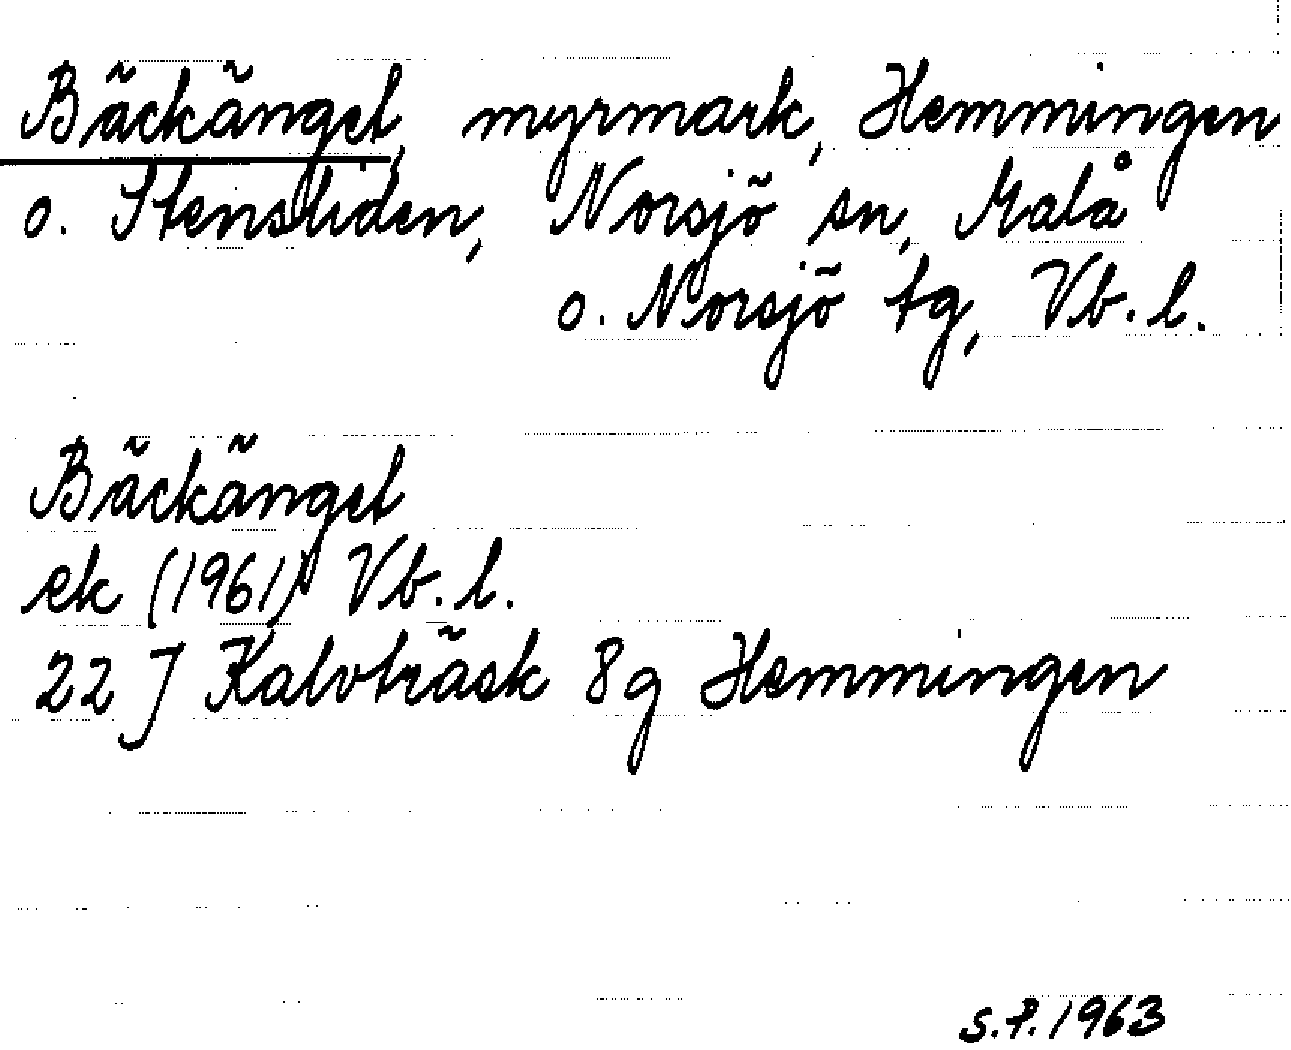 Bäckänget, myrmark, Hemmingen
o. Stensliden, Norsjö sn, Malå
o. Norsjö tg, Vb. l.
Bäckänget
ek (1961) Vb. l.
22 J Kalvträsk 8g Hemmingen
S.P. 1963